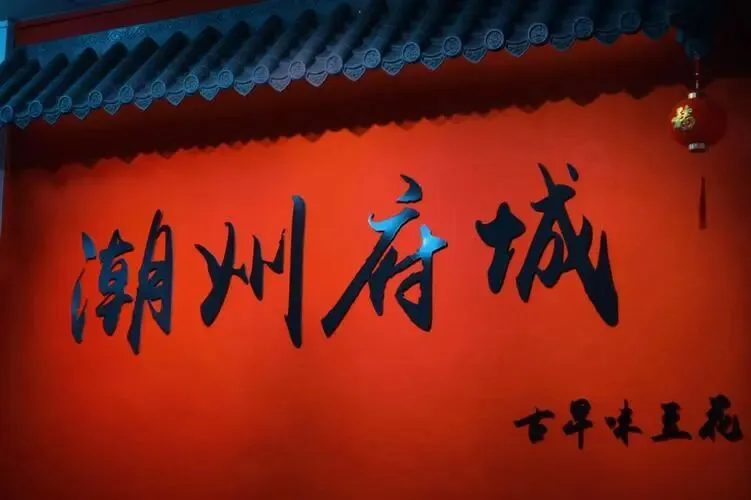 潮州府城
古早味豆花